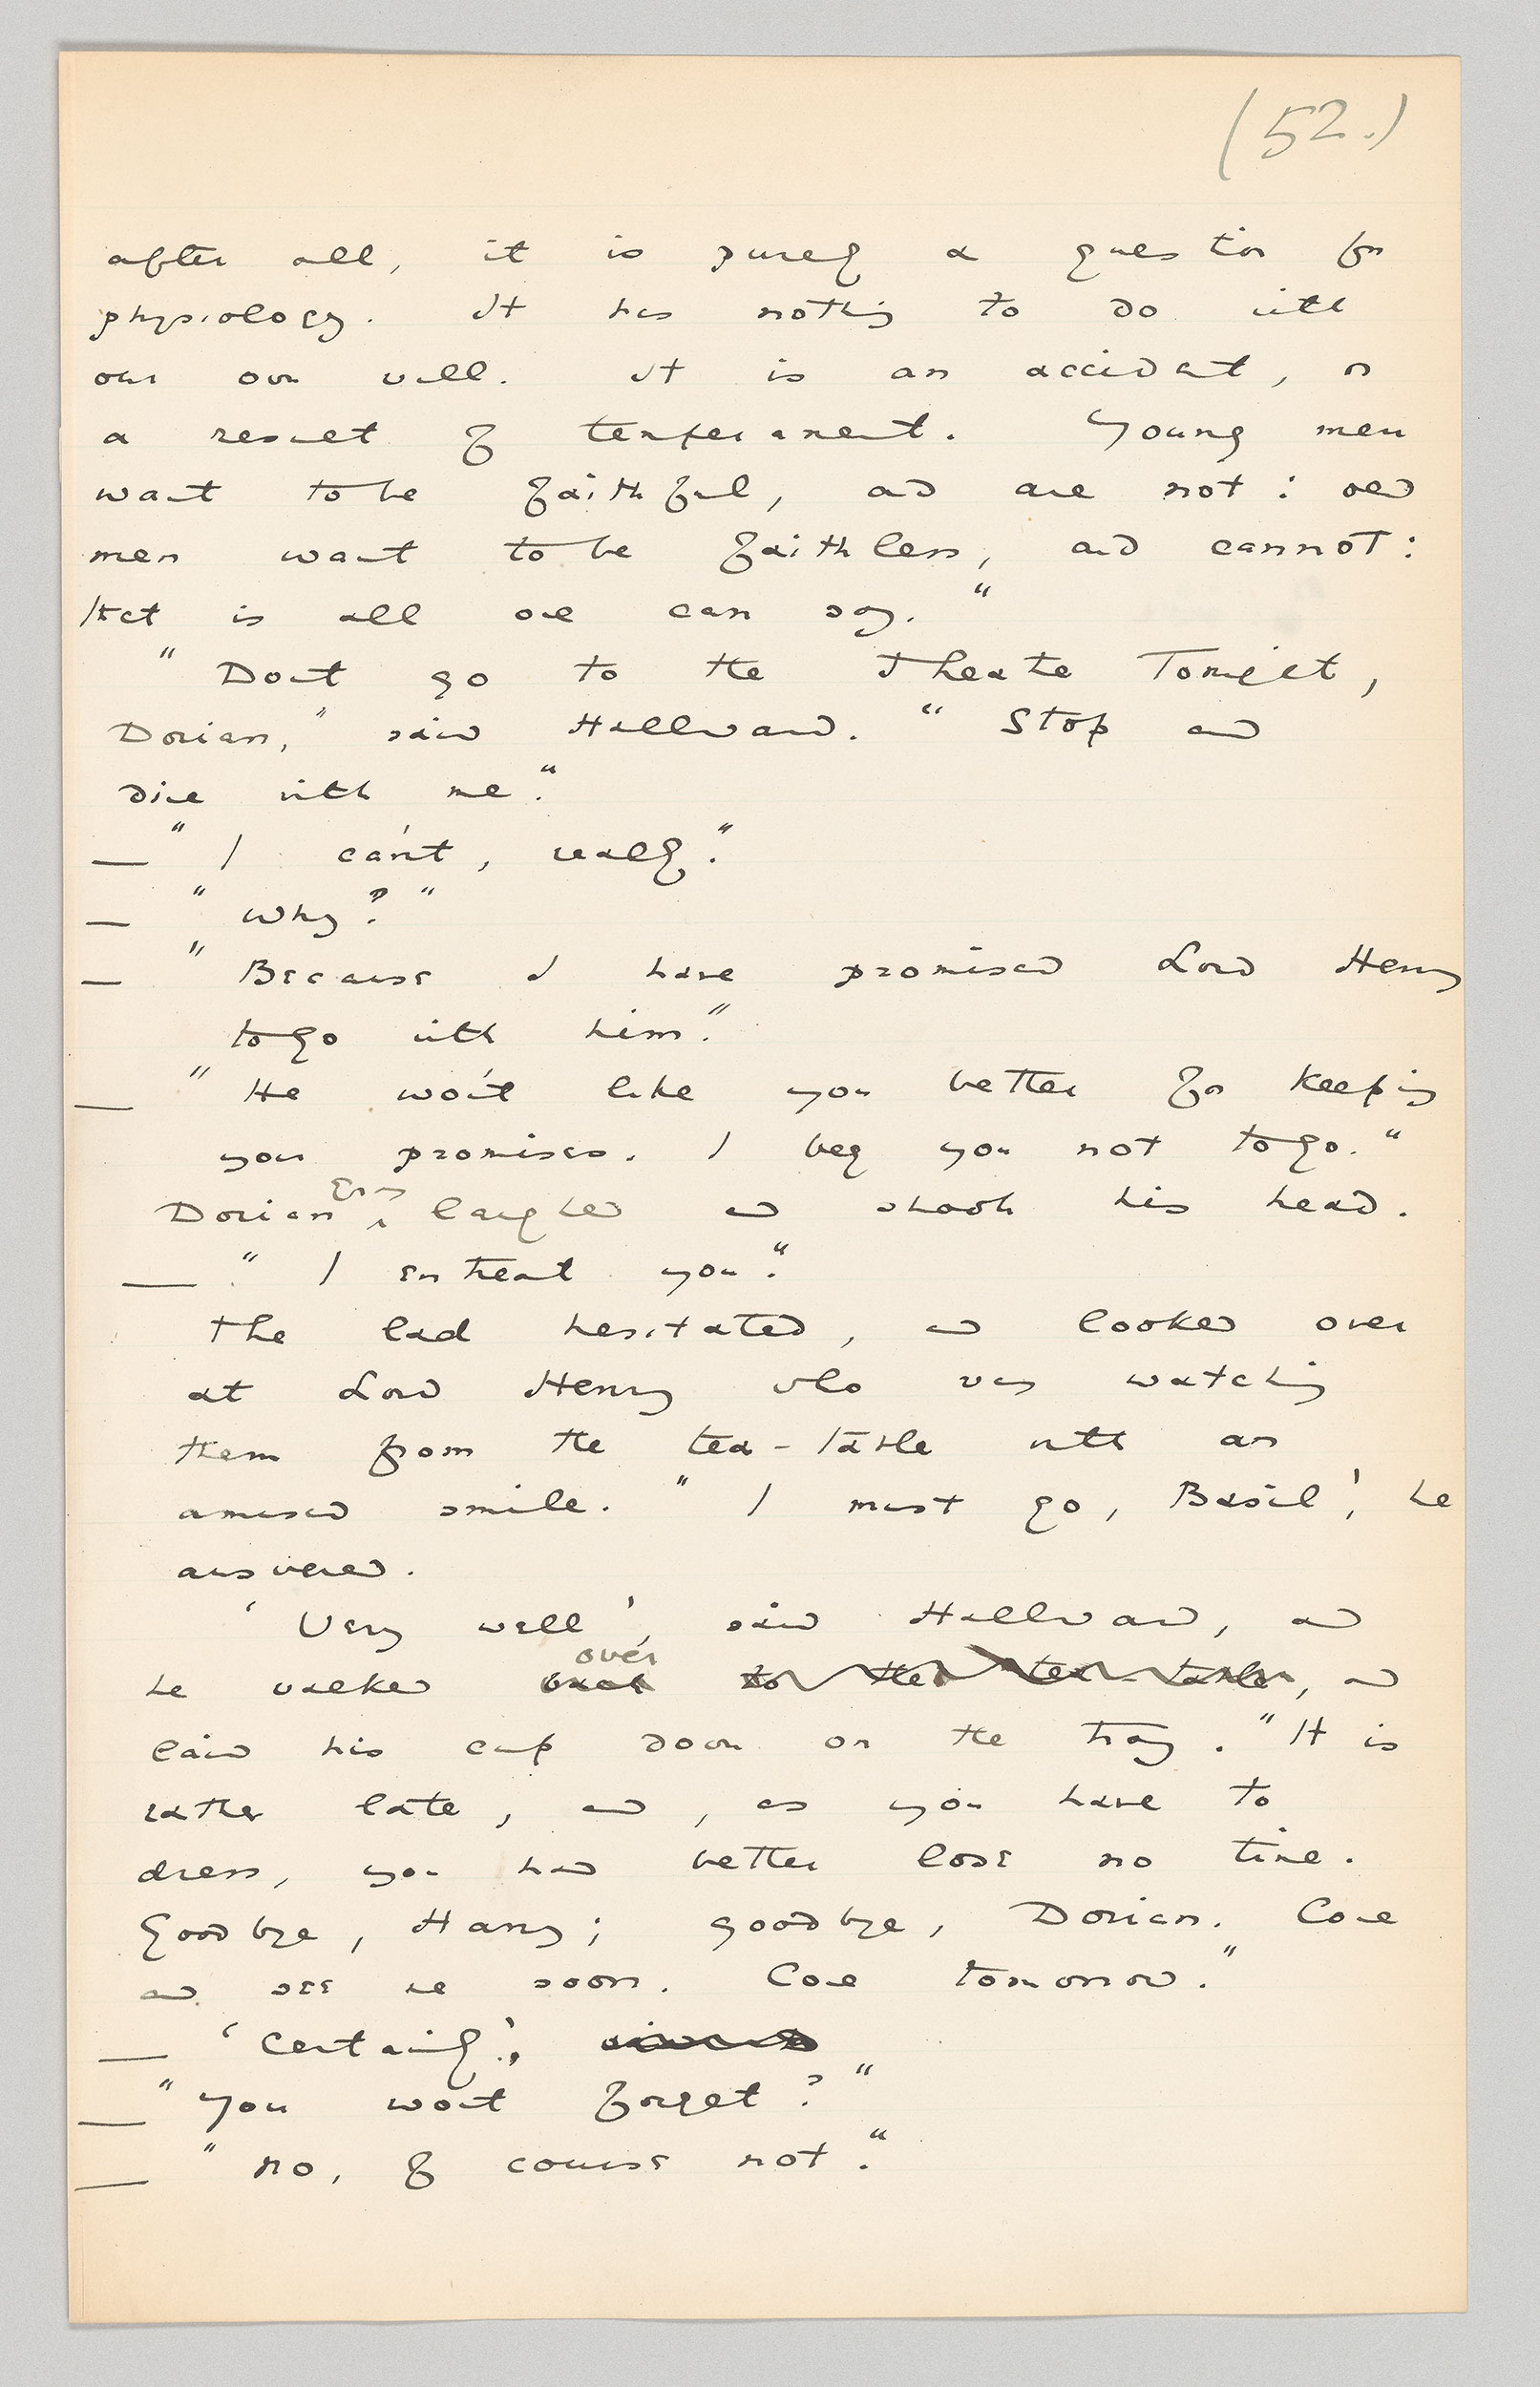 (52.)
after all, it is purely a question for
physiology. It has nothing to do with
our own will. It is an accident, or
a result of temperament. Young men
want to be faithful, and are not: old
men want to be faithless, and cannot:
that is all one can say."
"Dont go to the Theatre Tonight,
Dorian," said Hallward. "Stop and
dine with me."
— "I can't, really."
— "Why?"
— "Because I have promised Lord Henry
to go with him."
— "He won't like you better for keeping
your promises. I beg you not to go."
Dorian Gray laughed and shook his head.
— "I entreat you."
The lad hesitated, and looked over
at Lord Henry who was watching
them from the tea-table with an
amused smile. "I must go, Basil', he
answered.
'Very well', said Hallward, and
he walked over to the tea-table, and
laid his cup down on the tray. "It is
rather late, and, as you have to
dress, you had better lose no time.
Goodbye, Harry; goodbye, Dorian. Come
and see me soon. Come tomorrow."
— 'Certainly.'
— "You wont forget?"
— "No, of course not."